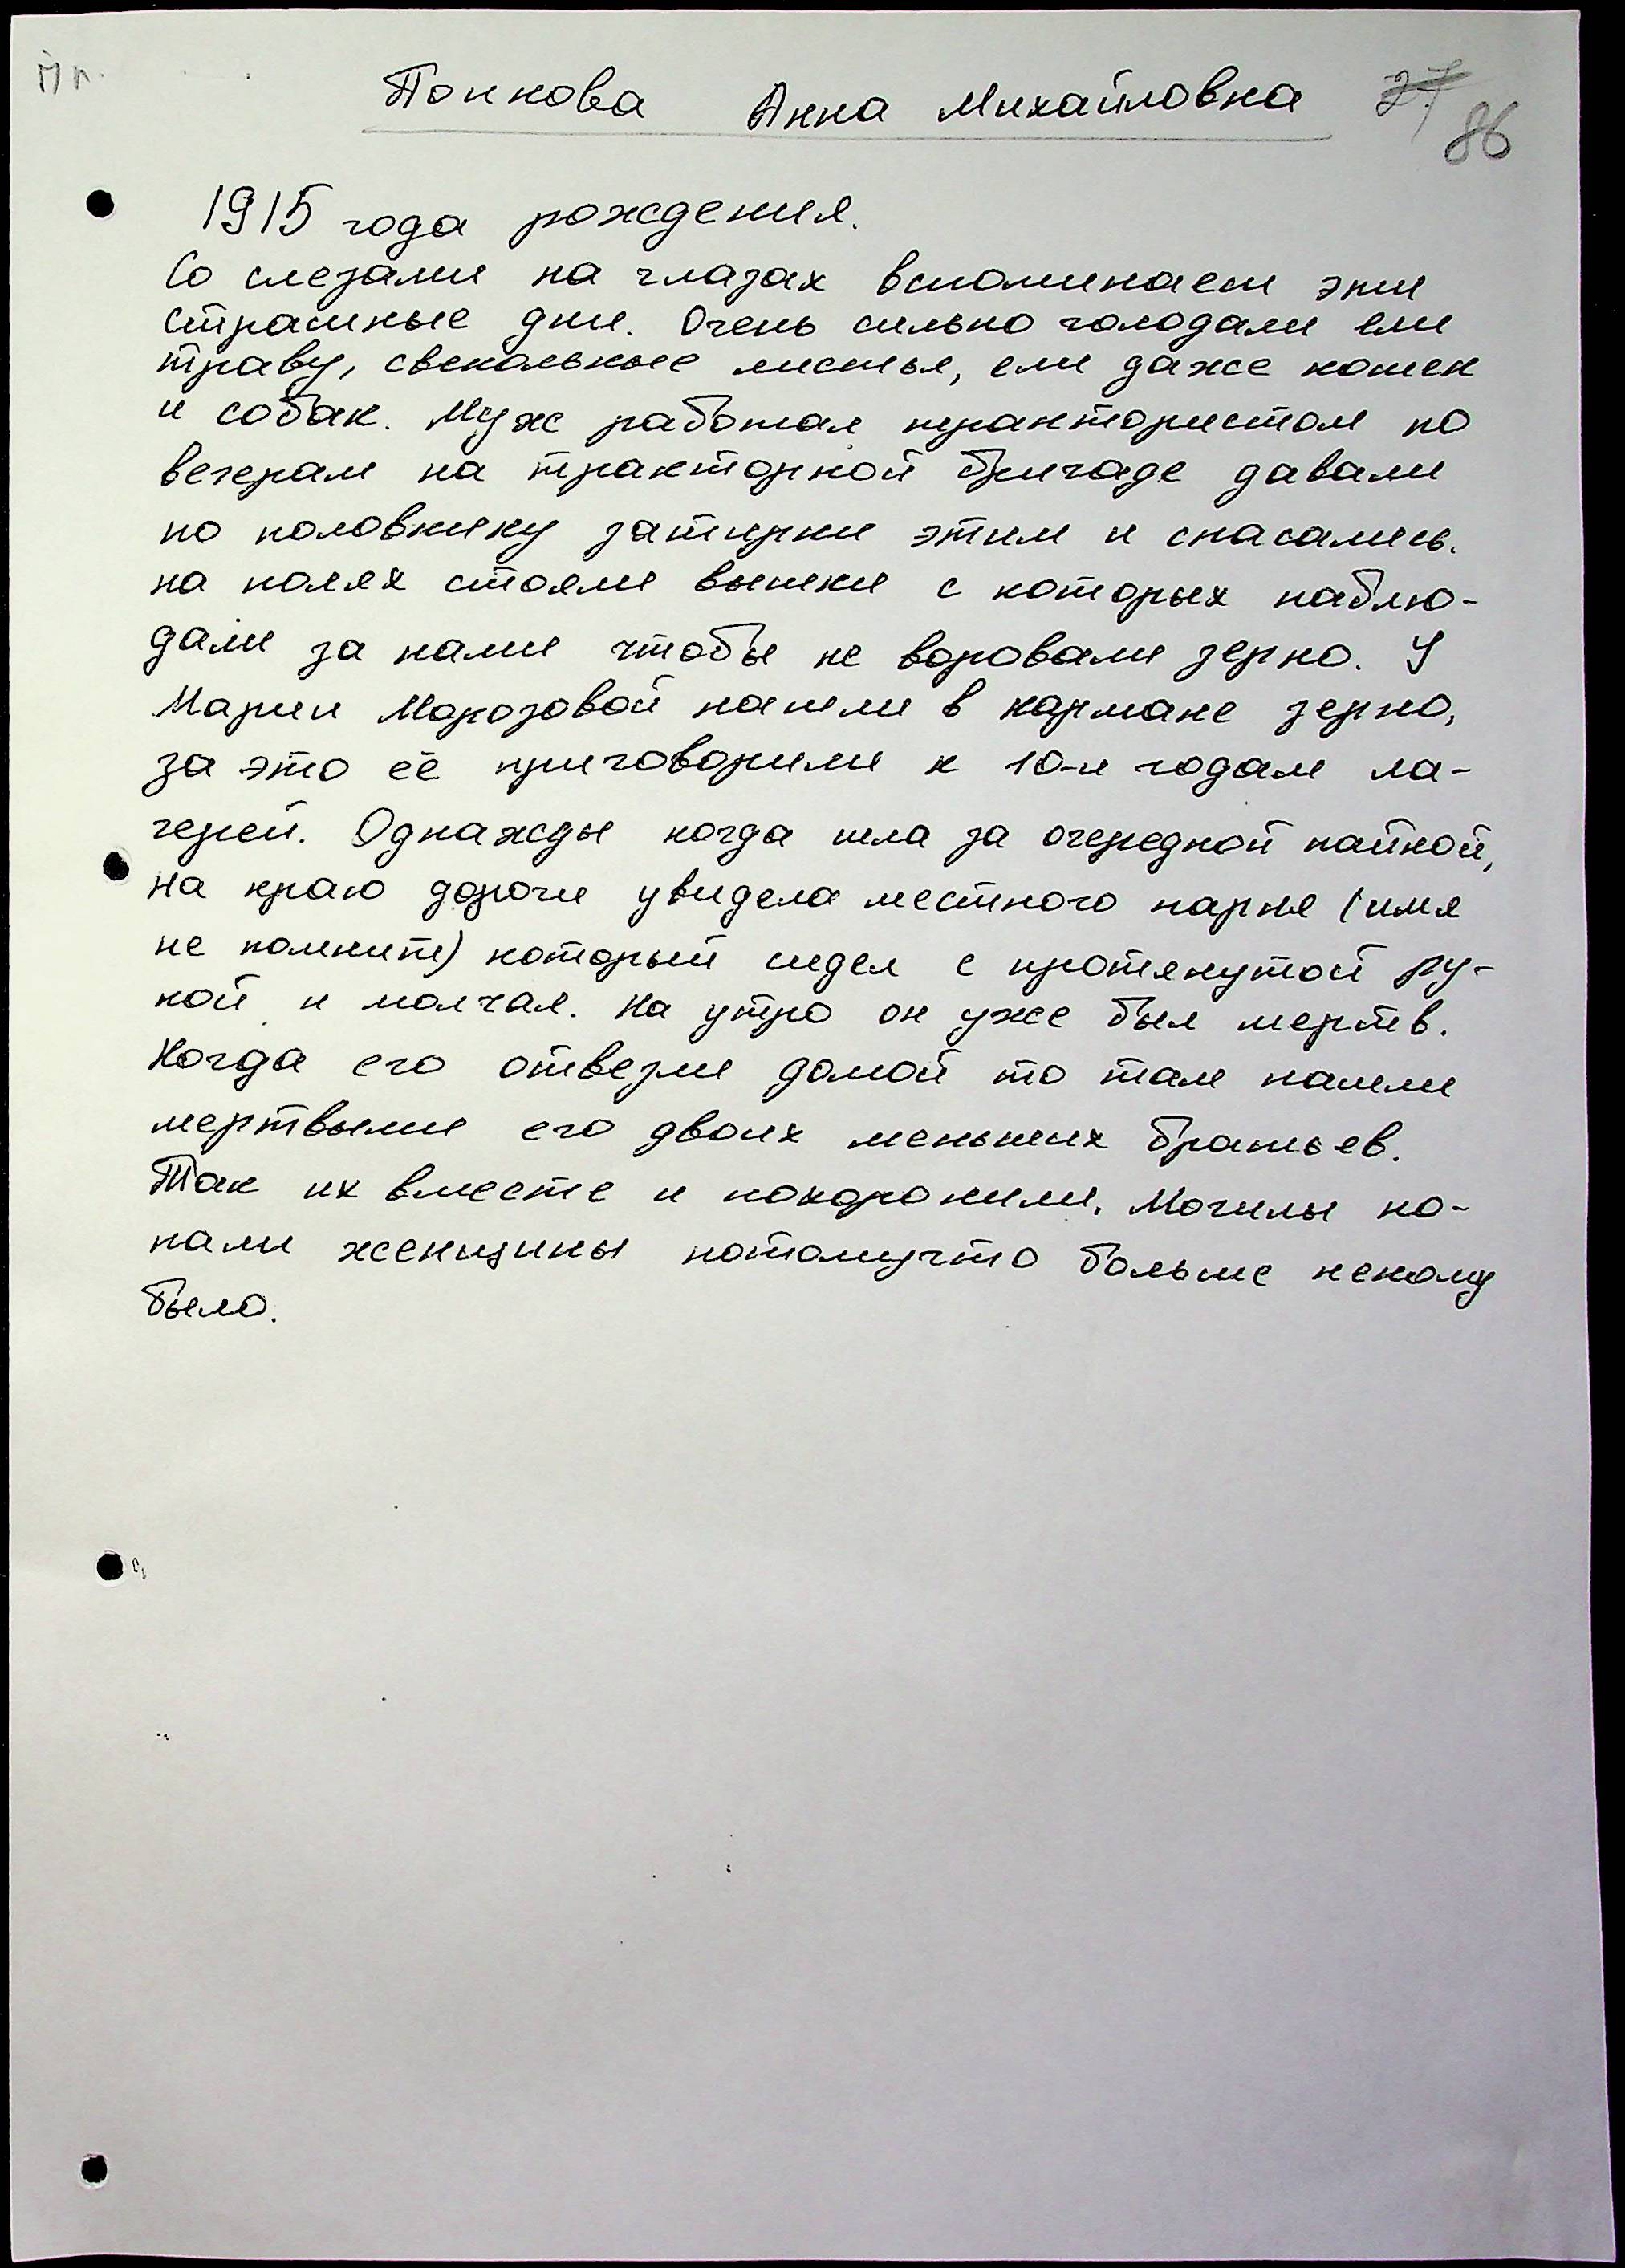 Попкова Анна Михайловна 27
86
1915 года рождения.
Со слезами на глазах вспоминает эти
страшные дни. Очень сильно голодали ели
траву, свекольные листья, ели даже кошек
и собак. Муж работал трактористом по
вечерам на тракторной бригаде давали
по половнику затирки этим и спасались.
на полях стояли вышки с которых наблю-
дали за нами чтобы не воровали зерно. У
Марии Морозовой нашли в кармане зерно,
за это её приговорили к 10-и годам ла-
герей. Однажды когда шла за очередной пайкой,
на краю дороги увидела местного парня (имя
не помнит) который сидел с протянутой ру-
кой и молчал. На утро он уже был мертв.
Когда его отвезли домой то там нашли
мертвыми его двоих меньших братьев.
Так их вместе и похоронили. Могилы ко-
пали женщины потомучто больше некому
было.